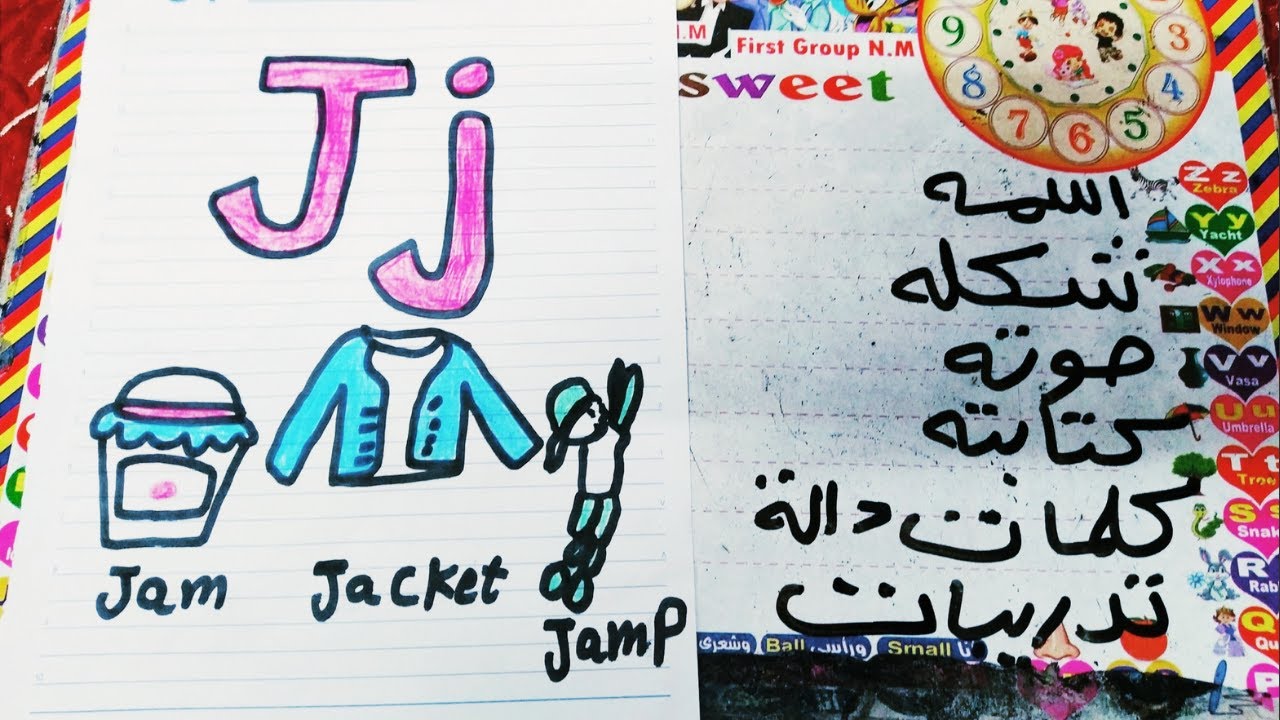 Jj
Jam
Jacket
Jamp
N.M
First Group N.M
sweet
9
8
7
6
5
4
3
اسمه
شكله
صوته
كتابته
كلمات دالة
تدريبات
Zz
Zebra
Yy
Yacht
Xx
Xylophone
Ww
Window
Vv
Vasa
Uu
Umbrella
T t
Tree
S s
Snak
R
Rab
Q
Qu
P
وشعرى Ball ورأسى Small نا